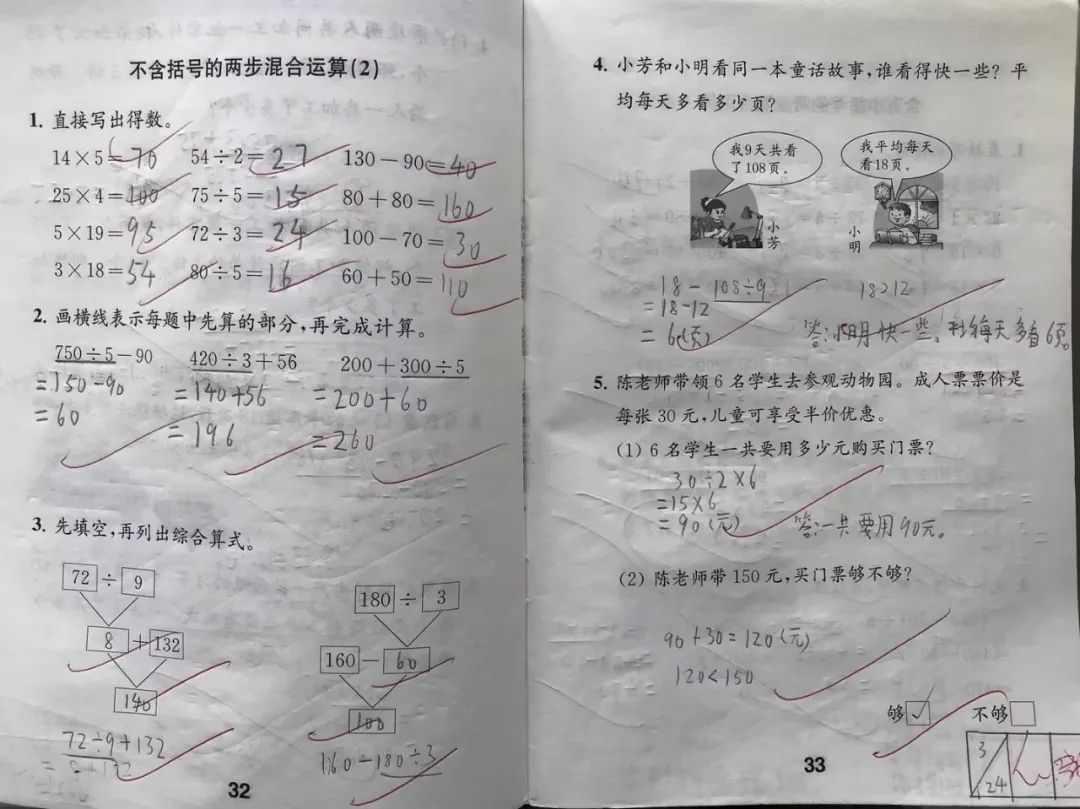 不含括号的两步混合运算(2)
1. 直接写出得数。
14×5=70 54÷2=27 130-90=40
25×4=100 75÷5=15 80+80=160
5×19=95 72÷3=24 100-70=30
3×18=54 80÷5=16 60+50=110
2. 画横线表示每题中先算的部分,再完成计算。
750÷5-90 420÷3+56 200+300÷5
=150-90 =140+56 =200+60
=60 =196 =260
3. 先填空,再列出综合算式。
72÷9
180÷3
8+132
160-60
140
100
72÷9+132
160-180÷3
=8+132
32
4. 小芳和小明看同一本童话故事,谁看得快一些?平
均每天多看多少页?
我9天共看
了108页。
我平均每天
看18页。
小芳
小明
18-108÷9
18>12
=18-12
=6(页)
答:小明快一些,每天多看6页。
5. 陈老师带领6名学生去参观动物园。成人票票价是
每张30元,儿童可享受半价优惠。
(1) 6名学生一共要用多少元购买门票?
30÷2×6
=15×6
=90(元)
答:一共要用90元。
(2) 陈老师带150元,买门票够不够?
90+30=120(元)
120<150
够☑ 不够□
33
3/24